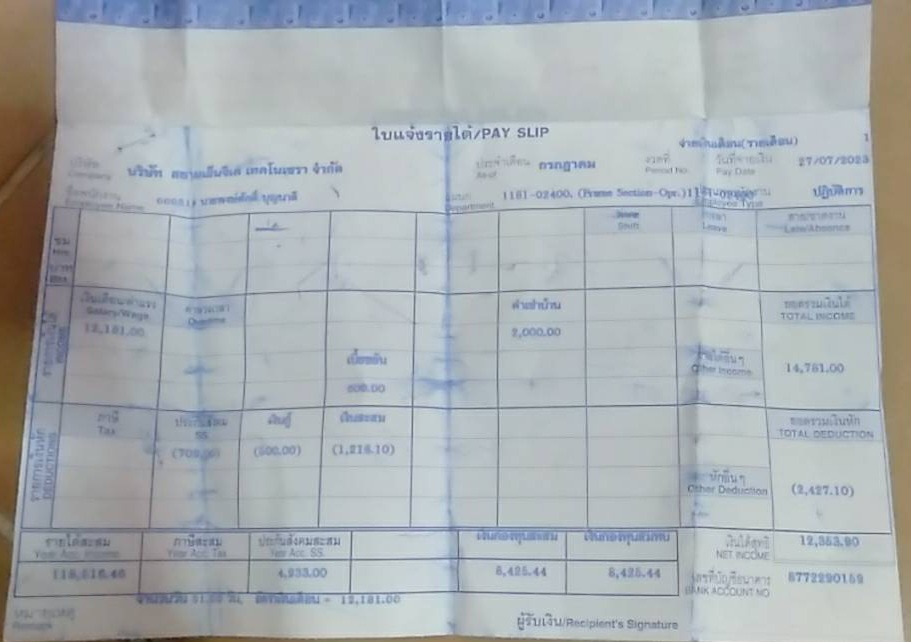 ใบแจ้งรายได้/PAY SLIP
จ่ายเงินเดือน(รายเดือน) 1
บริษัท Company บริษัท เทคโนเซรา จำกัด ประจำเดือน As of กรกฎาคม งวดที่ Period No. วันที่จ่ายเงิน Pay Date 27/07/2023
ชื่อพนักงาน Employee Name บุญนาดี แผนก Department 1181-02400, (Frame Section-Opr.) Employee Type ปฏิบัติการ
ชม. Hrs. กะ Shift ลา Leave สาย/ขาดงาน Late/Absence
บาท
รายการเงินได้ INCOME เงินเดือน/ค่าแรง Salary/Wage ค่าล่วงเวลา Overtime ค่าเช่าบ้าน ยอดรวมเงินได้ TOTAL INCOME
12,181.00 2,000.00
เบี้ยขยัน รายได้อื่นๆ Other Income 14,781.00
600.00
รายการเงินหัก DEDUCTIONS ภาษี Tax ประกันสังคม SS. เงินกู้ เงินสะสม ยอดรวมเงินหัก TOTAL DEDUCTION
(500.00) (1,218.10)
หักอื่นๆ Other Deduction (2,427.10)
รายได้สะสม Year Acc. Income ภาษีสะสม Year Acc. Tax ประกันสังคมสะสม Year Acc. SS. เงินกองทุนสะสม เงินกองทุนสมทบ เงินได้สุทธิ NET INCOME 12,353.90
4,933.00 8,425.44 8,425.44 เลขที่บัญชีธนาคาร BANK ACCOUNT NO 8772290159
หมายเหตุ Remark จำนวนวัน วัน, อัตราเงินเดือน = 12,181.00
ผู้รับเงิน/Recipient's Signature